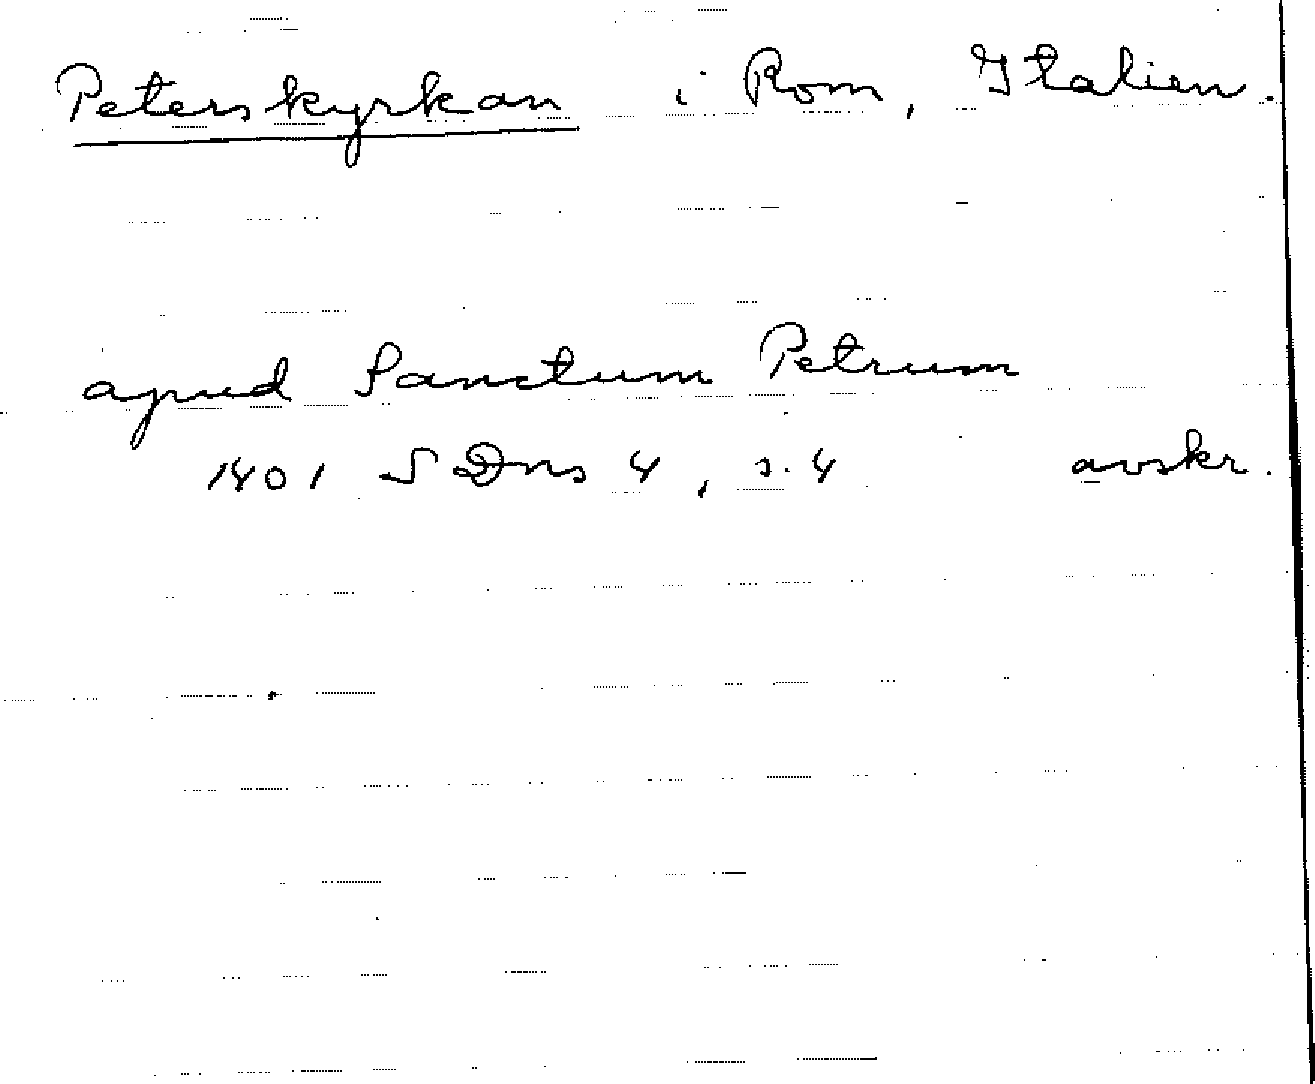 Peterskyrkan i Rom, Italien.
apud Sanctum Petrum
1401 SDns 4, s. 4 avskr.